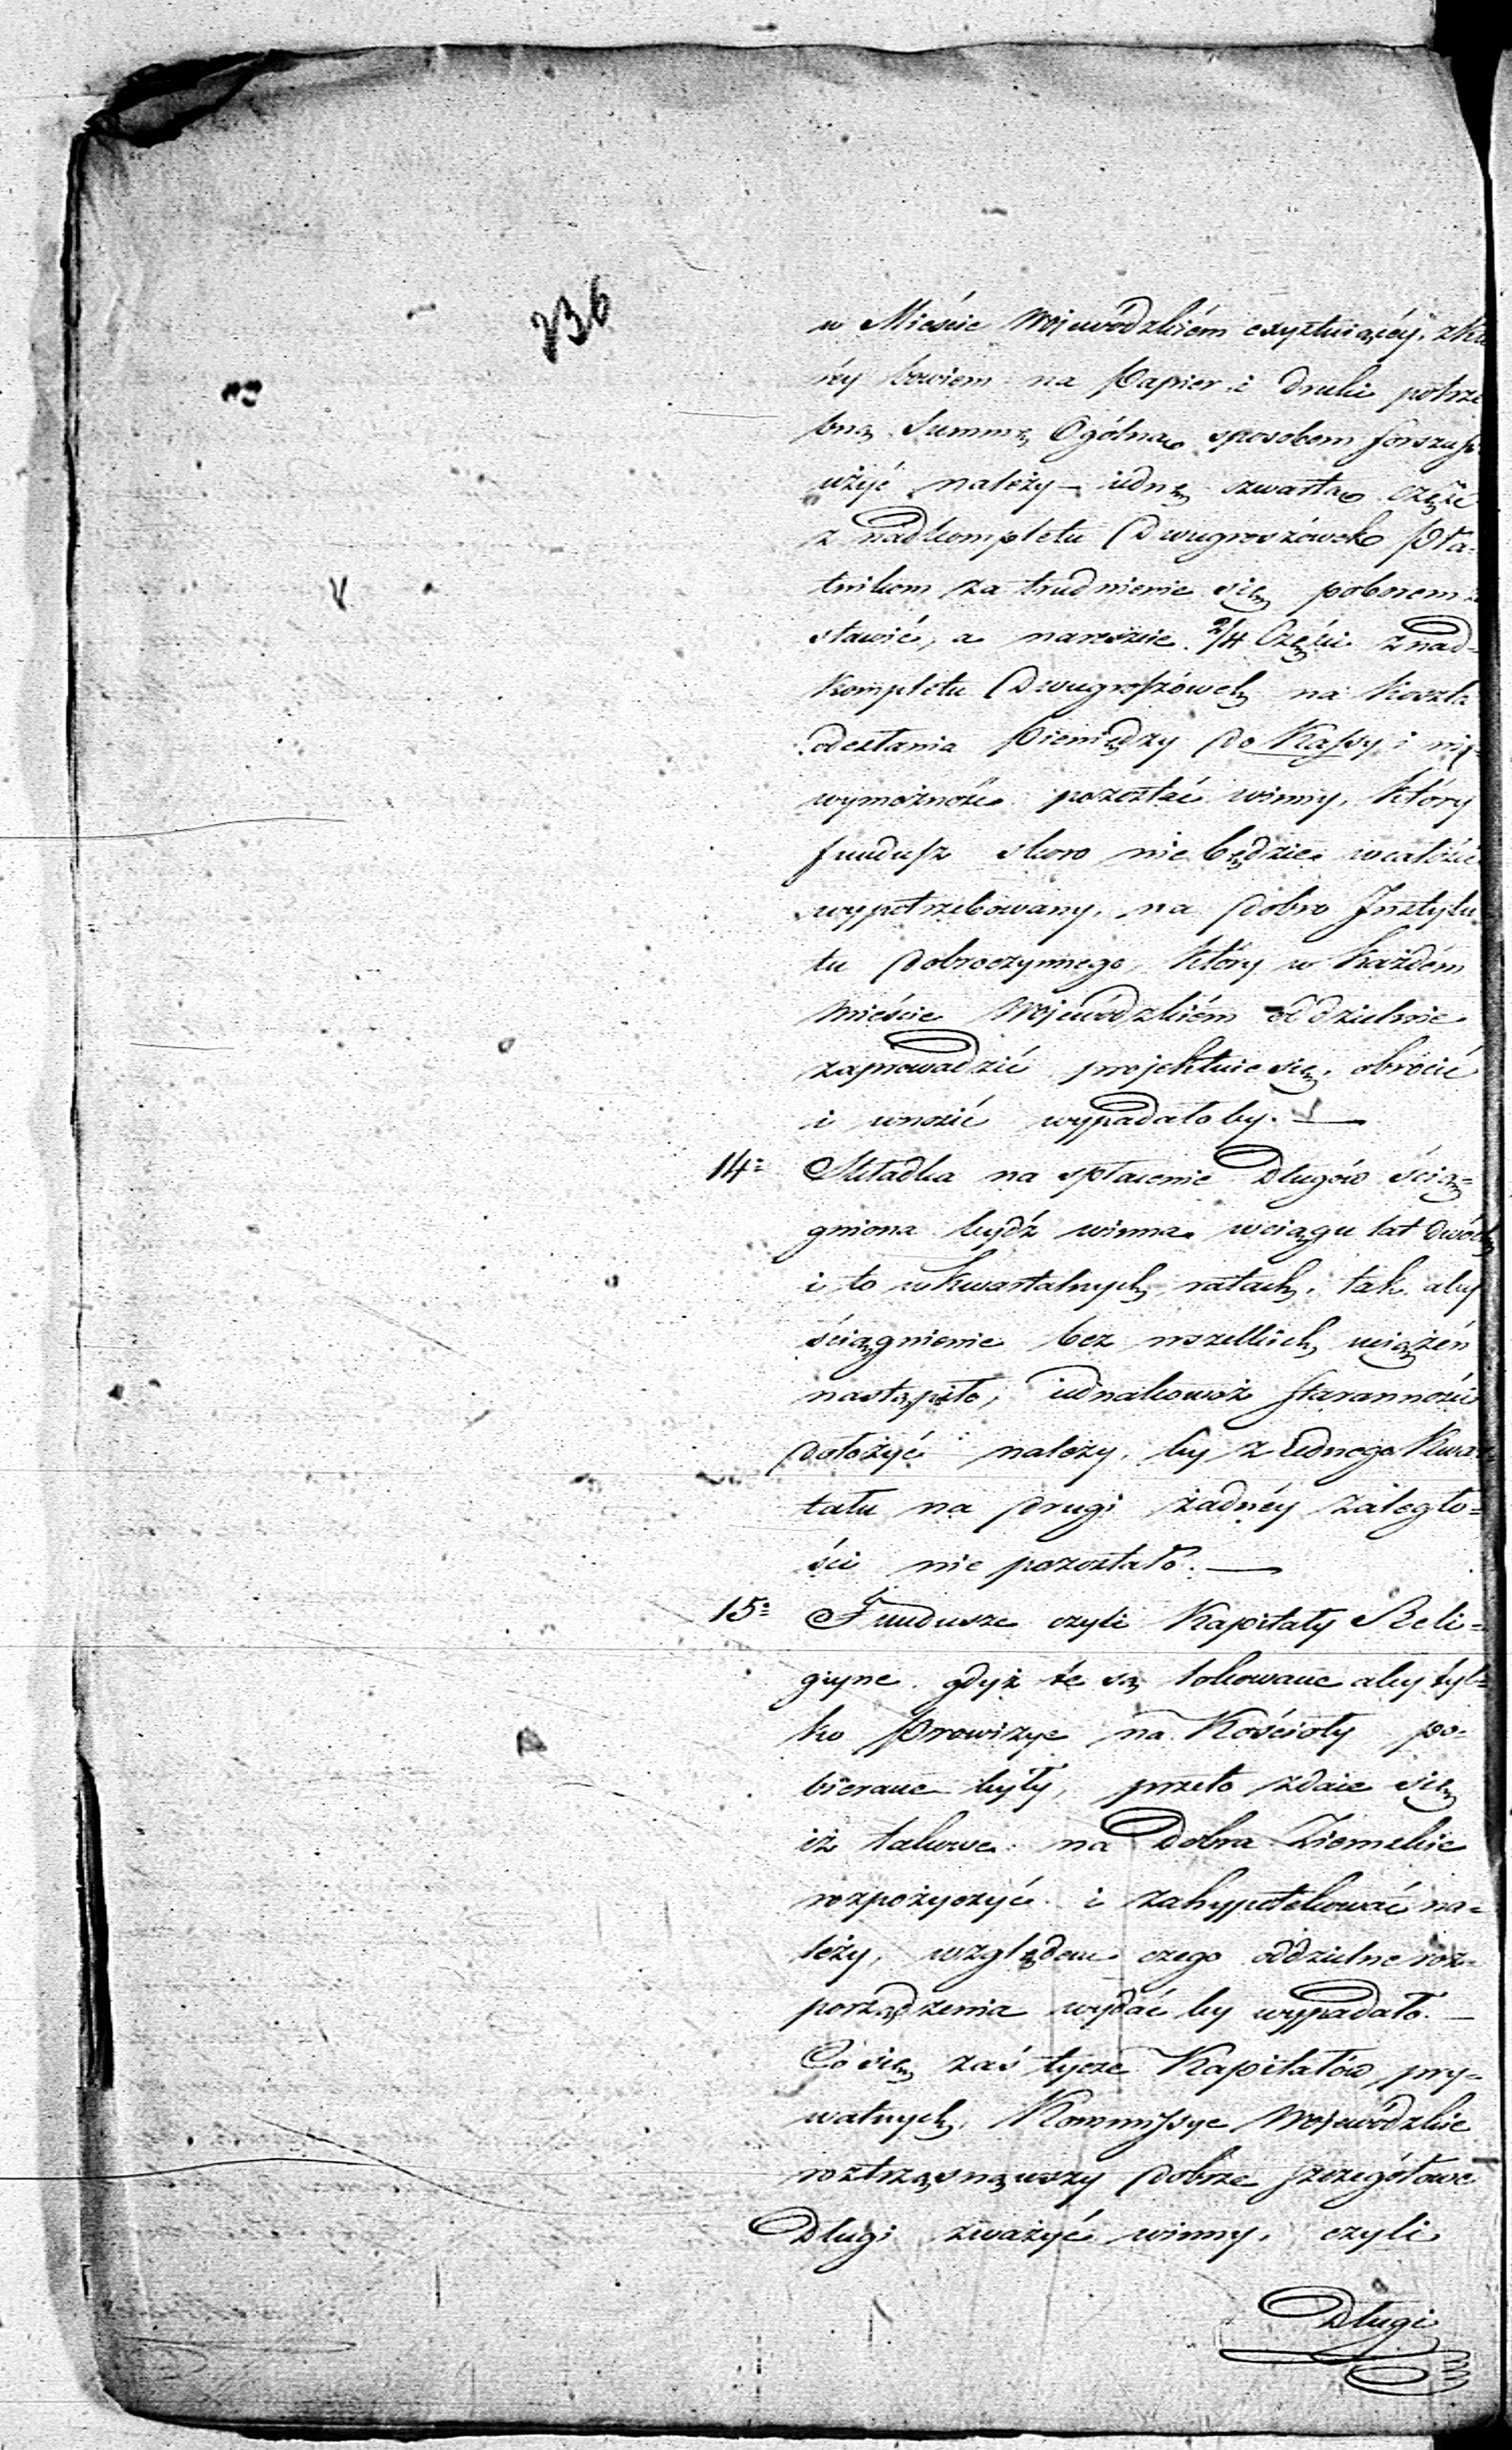 236
w Mieście Wojewódzkiém exystuiącéy, z któ
réy bowiem na Papier i druki potrze
bną Summę Ogólną sposobem forszusu
użyć należy – iedną czwartą część
z nadkompletu Dwugroszówek Pła-
tnikom za trudnienie się poborem zo
stawić, a nareszcie 2/4 Części z nad-
kompletu Dwugroszówek na koszta
odesłania Pieniędzy do Kassy i nie-
wymożność pozostać winny, który
fundusz skoro nie będzie wcałości
wypotrzebowany, na dobro Instytu
tu dobroczynnego, który w każdém
mieście Wojewódzkiém oddzielnie
zaprowadzić projektuie się, obrócić
i wnosić wypadałoby. —
14: Składka na spłacenie Długów ścią-
gniona bydź winna wciągu lat dwóch
i to wkwartalnych ratach, tak aby
ściągnienie bez wszelkich uciążeń
nastąpiło, iednakowoż staranności
dołożyć należy, by z iednego Kwar
tału na drugi żadnéy zaległo-
ści nie pozostało. —
15: Fundusze czyli Kapitały Reli-
giyne gdyż te są lokowane aby tyl-
ko Prowizye na Kościoły po-
bierane były, przeto zdaie się
iż takowe na Dobra Ziemskie
rozpożyczyć i zahypotekować na-
leży, względem czego oddzielne roz-
porządzenia wydać by wypadało. —
Co się zaś tycze Kapitałów pry-
watnych, Kommissye Wojewódzkie
roztrząsnąwszy dobrze szczegółowe
Długi zważyć winny, czyli
Długi